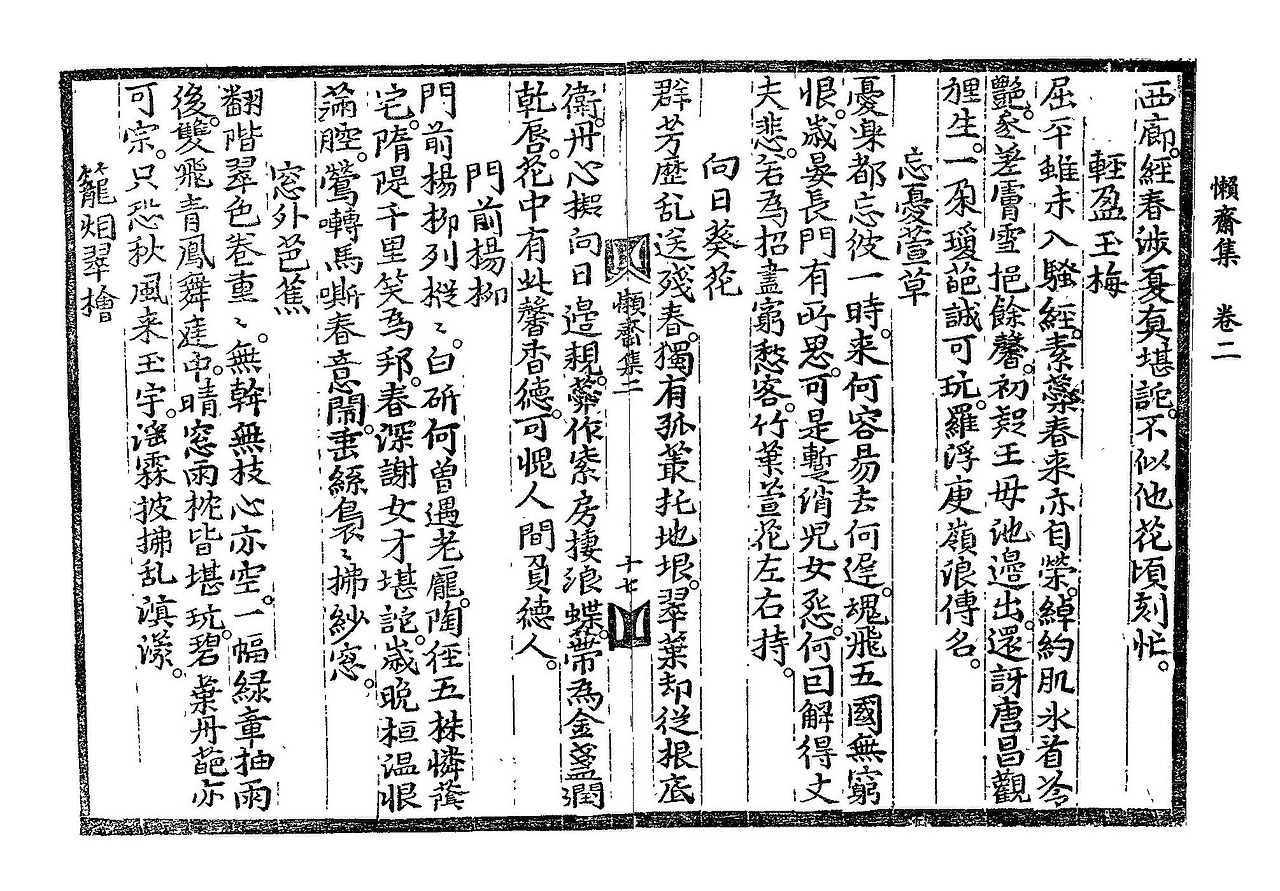 懶齋集 卷二
西廊。經春涉夏真堪詑。不似他花頃刻忙。
輕盈玉梅
屈平雖未入騷經。素蘂春来亦自榮。綽約肌氷着冷
艷。豕差膚雪挹餘馨。初疑王母池邉出。還訝唐昌觀
裡生。一朶瓊葩誠可玩。羅浮庾嶺浪傳名。
忘憂萱草
憂来都忘彼一時。来何容昜去何遅。魂飛五國無窮
恨。歲晏長門有所思。可是暫綃児女怨。何曰解得丈
夫悲。若為招盡窮愁客。竹葉萱花左右持。
向日葵花
群芳歷乱送残春。獨有孤叢托地垠。翠葉却從根底
衛。丹心擬向日邉親。蘂作紫房捿浪蝶。蔕為金盞潤
乾唇。花中有此馨香德。可愧人間負德人。
懶齋集二
十七
門前楊柳
門前楊柳列樅〻。白斫何曾遇老龎。陶徑五株憐蔭
宅。隋隄千里笑為邦。春深謝女才堪詑。歲晩桓温恨
滿腔。鶯囀馬嘶春意閙。垂絲裊〻拂紗窓。
窓外芭蕉
翻階翠色卷重〻。無幹無枝心亦空。一幅緑章抽雨
後。雙飛青鳳舞蓮中。晴窓雨枕皆堪玩。碧葉丹葩亦
可宗。只恐秋風来玉宇。滛霖披拂乱滇濛。
籠烟翠檜